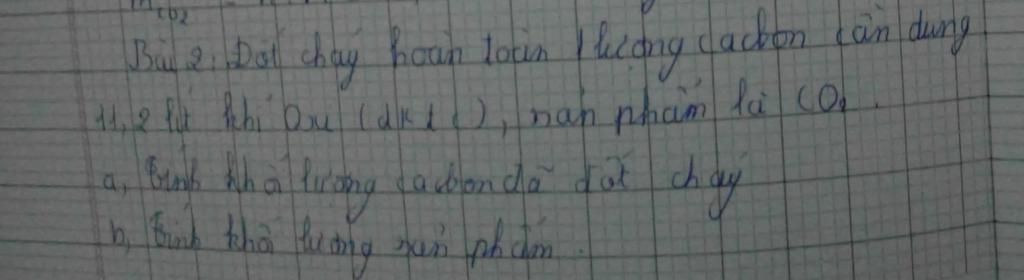 CO2
Bài 2: Đốt cháy hoàn toàn 1 lượng cacbon cần dùng
11,2 lít khí Oxi (đktc), sản phẩm là CO2.
a, Tính khối lượng cacbon đã đốt cháy
b, Tính khối lượng sản phẩm.